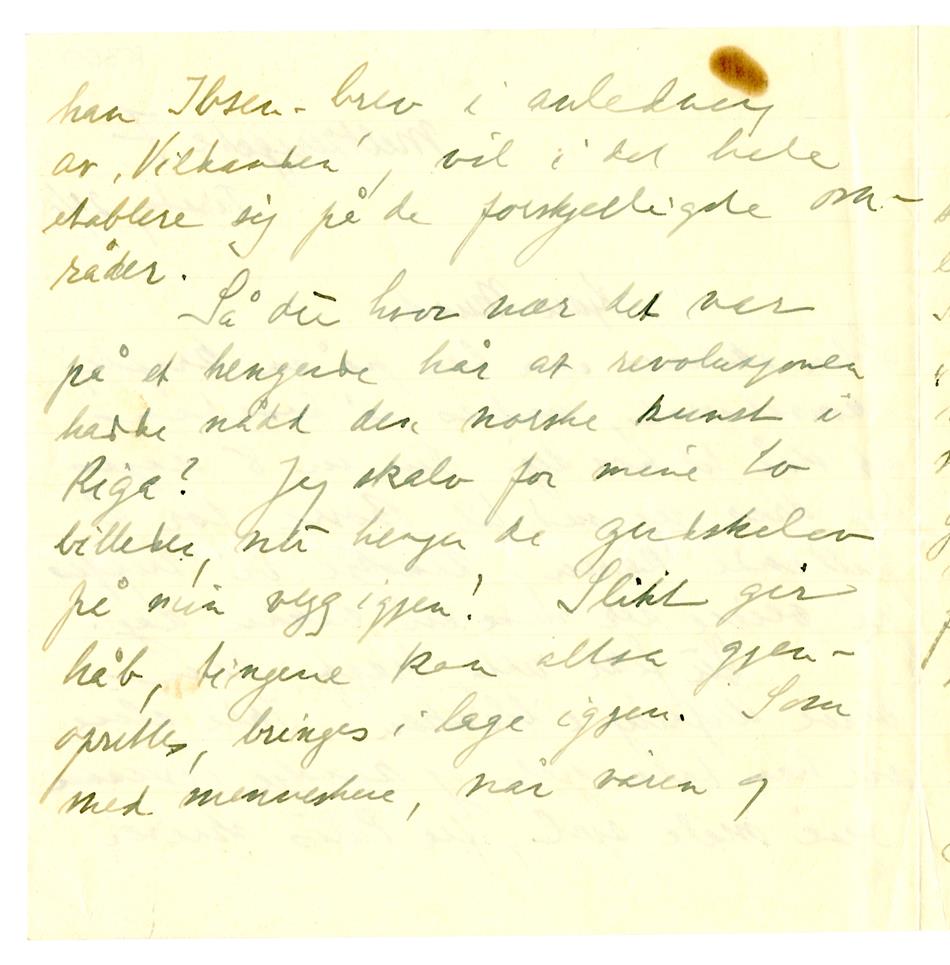 han Ibsen-brev i anledning
av „Vildanden”, vil i det hele
etablere sig på de forskjelligste om-
råder.
Så du hvor nær det var
på et hengende hår at revolusjonen
hadde nådd den norske kunst i
Riga? Jeg skalv for mine to
billeder, nu henger de gudskelov
på min vegg igjen! Slikt gir
håb, tingene kan altså gjen-
oprettes, bringes i lage igjen. Som
med menneskene, når våren og